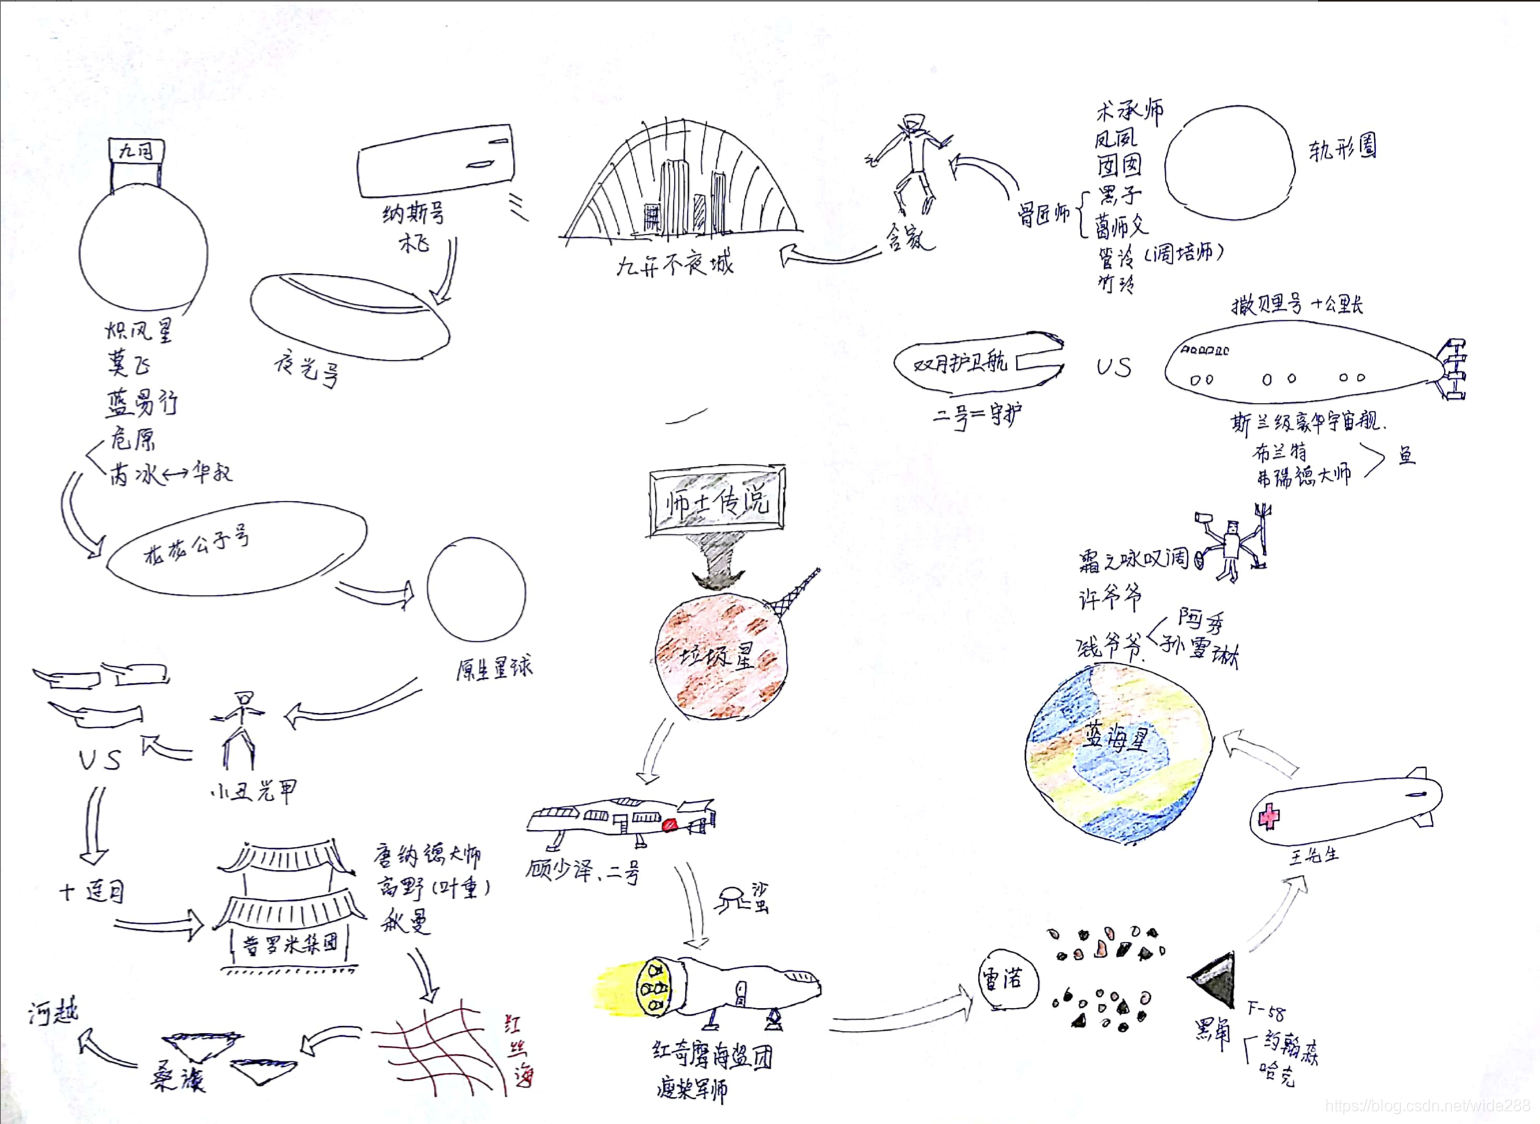 师士传说
垃圾星
顾少泽、二号
沙虫
红奇摩海盗团
瘦柴军师
雷诺
F-58
黑角
约翰森
哈克
王先生
蓝海星
霜之咏叹调
许爷爷
钱爷爷
阿秀
孙雪琳
撒贝里号 十公里长
斯兰级豪华宇宙舰.
布兰特
弗瑞德大师
鱼
VS
双月护卫航
二号=守护
轨形圈
术承师
囡囡
骨匠师
黑子
葛师父
管泠(调培师)
竹玲
九弃不夜城
纳斯号
夜光号
九月
炽风星
莫飞
蓝易行
危原
芮冰↔华叔
花花公子号
原生星球
小丑光甲
VS
十连目
普罗米集团
唐纳德大师
高野(叶重)
秋曼
红丝海
桑族
河越
https://blog.csdn.net/wide288